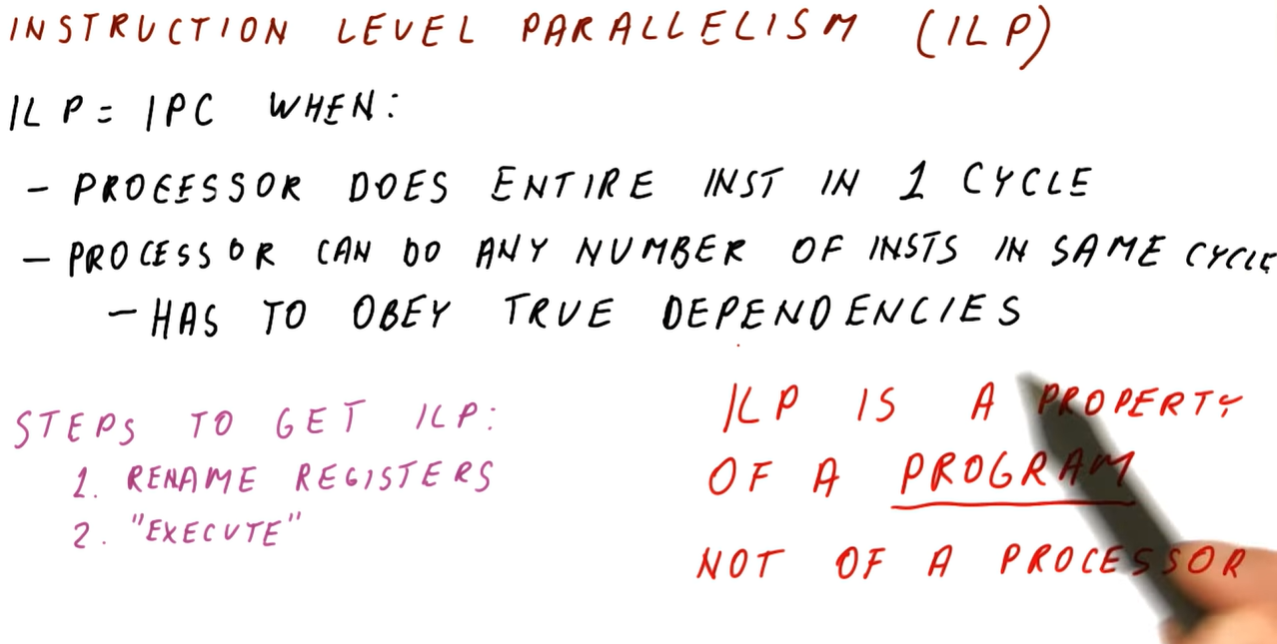 INSTRUCTION LEVEL PARALLELISM (ILP)
ILP = IPC WHEN:
- PROCESSOR DOES ENTIRE INST IN 1 CYCLE
- PROCESSOR CAN DO ANY NUMBER OF INSTS IN SAME CYCLE
- HAS TO OBEY TRUE DEPENDENCIES
STEPS TO GET ILP:
1. RENAME REGISTERS
2. "EXECUTE"
ILP IS A PROPERTY
OF A PROGRAM
NOT OF A PROCESSOR